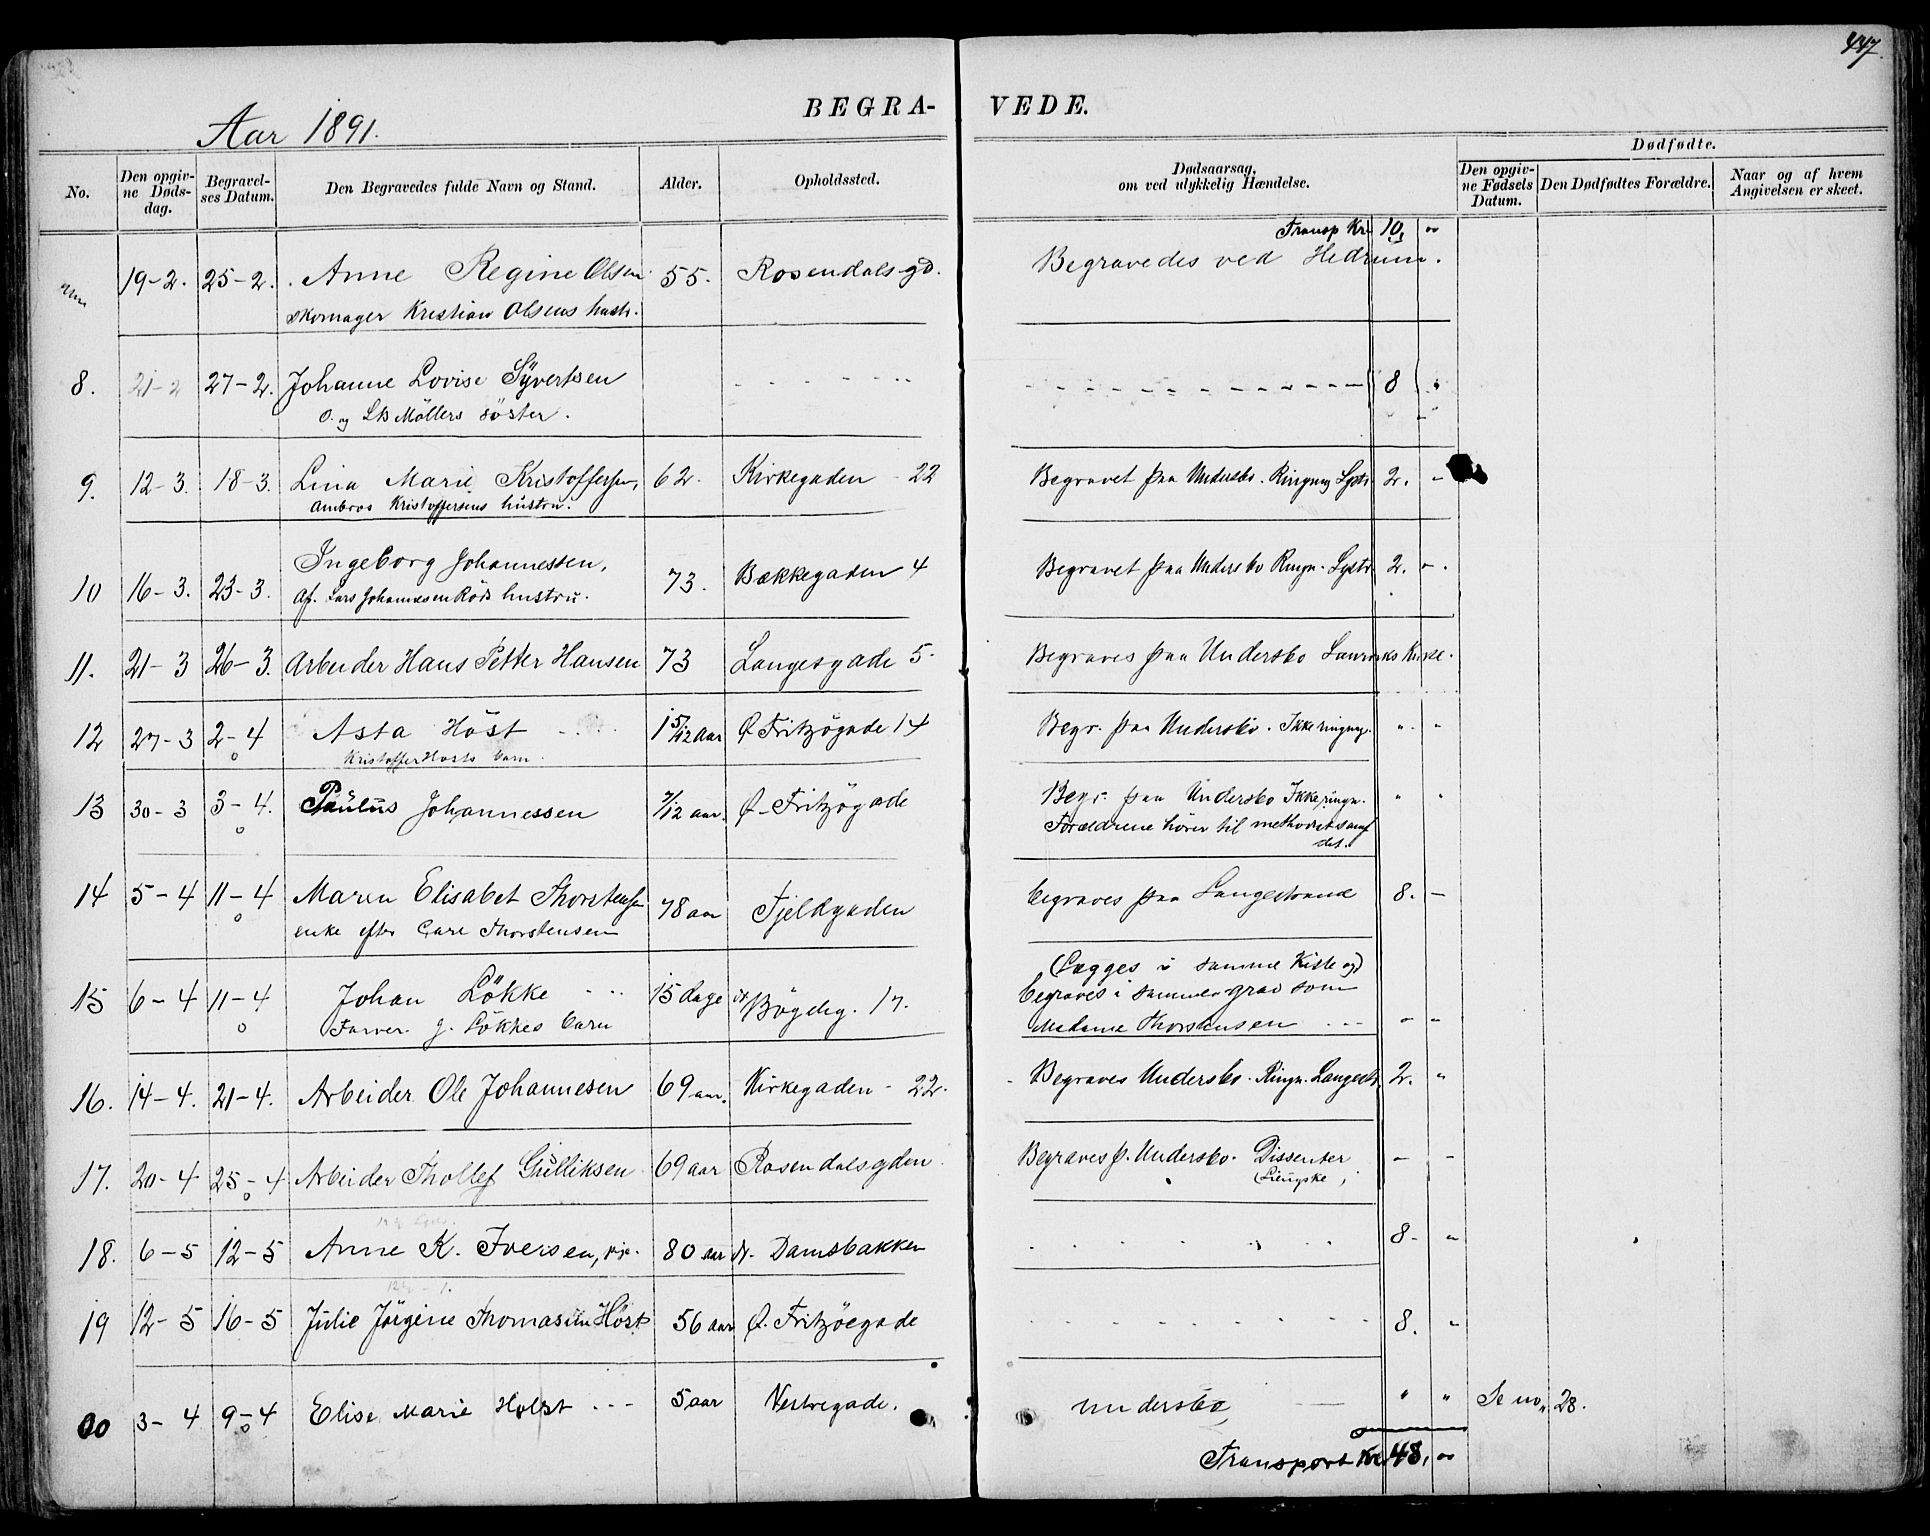 447.
Aar 1891.
BEGRA-
VEDE.
No.
Den opgiv-
ne Døds-
dag.
Begravel-
ses Datum.
Den Begravedes fulde Navn og Stand.
Alder.
Opholdssted.
Dødsaarsag,
om ved ulykkelig Hændelse.
Dødfødte.
Den opgiv-
ne Fødsels
Datum.
Den Dødfødtes Forældre.
Naar og af hvem
Angivelsen er skeet.
Transp Kr. 10, "
19-2. 25-2. Anne Regine Olsen 55. Rosendalsgd. Begravedes ved Hedrum.
skomager Kristian Olsens hustr.
8. 21-2 27-2. Johanne Lovise Syvertsen 8 "
O. og Møllers søster.
9. 12-3. 18-3. Lina Marie Kristoffersen, 62. Kirkegaden - 22 Begravet paa Undersbo. Ringning Lgstr. 2. "
Ambros Kristoffersens hustru.
10 16-3. 23-3. Ingeborg Johannessen, 73. Bækkegaden 4 Begravet paa Undersbo Ringn. Lgstr. 2. "
Af. Lars Johannesen Röds hustru.
11. 21-3 26-3. Arbeider Hans Petter Hansen 73 Langesgade 5. Begraves paa Undersbo Laurviks Kirke.
12 27-3 2-4 Asta Höst 1 5/12 Aar Ø Fritzøgade 14 Begr. paa Undersbo. Ikke ringng. " "
Kristoffer Hösts barn.
13 30-3 3-4. Paulus Johannessen 7/12 aar. Ø-Fritzøgade Begr. paa Undersbo Ikke ringn. " "
Forældrene hører til methodistsamf
det.
14 5-4 11-4 Maren Elisabet Thorstensen 78 aar Fjeldgaden begraves paa Langestrand 8. -
enke efter Carl Thorstensen
15 6-4 11-4 Johan Lökke 15 dage Bögdeg. 17. (Lægges i samme Kiste og)
Farver J. Lökkes barn begraves i samme grav som
Madame Thorstensen " "
16. 14-4. 21-4. Arbeider Ole Johannesen 69 aar. Kirkegaden - 22. Begraves Undersbo. Ringn. Langestr. 2. "
17. 20-4 25-4 Arbeider Thollef Gulliksen 69 aar Rosendalsgden. Begraves p. Undersbo. Dissenter - -
18. 6-5 12-5 Anne K. Iversen, 80 aar Damsbakken 8. "
19 12-5 16-5 Julie Jörgine Thomasine Höst 56 aar Ø. Fritzøegade 8. "
3-4 9-4 Elise Marie Holst 5 aar Vestregade. Undersbo " " Se no. 28.
Transport Kr. 48, "